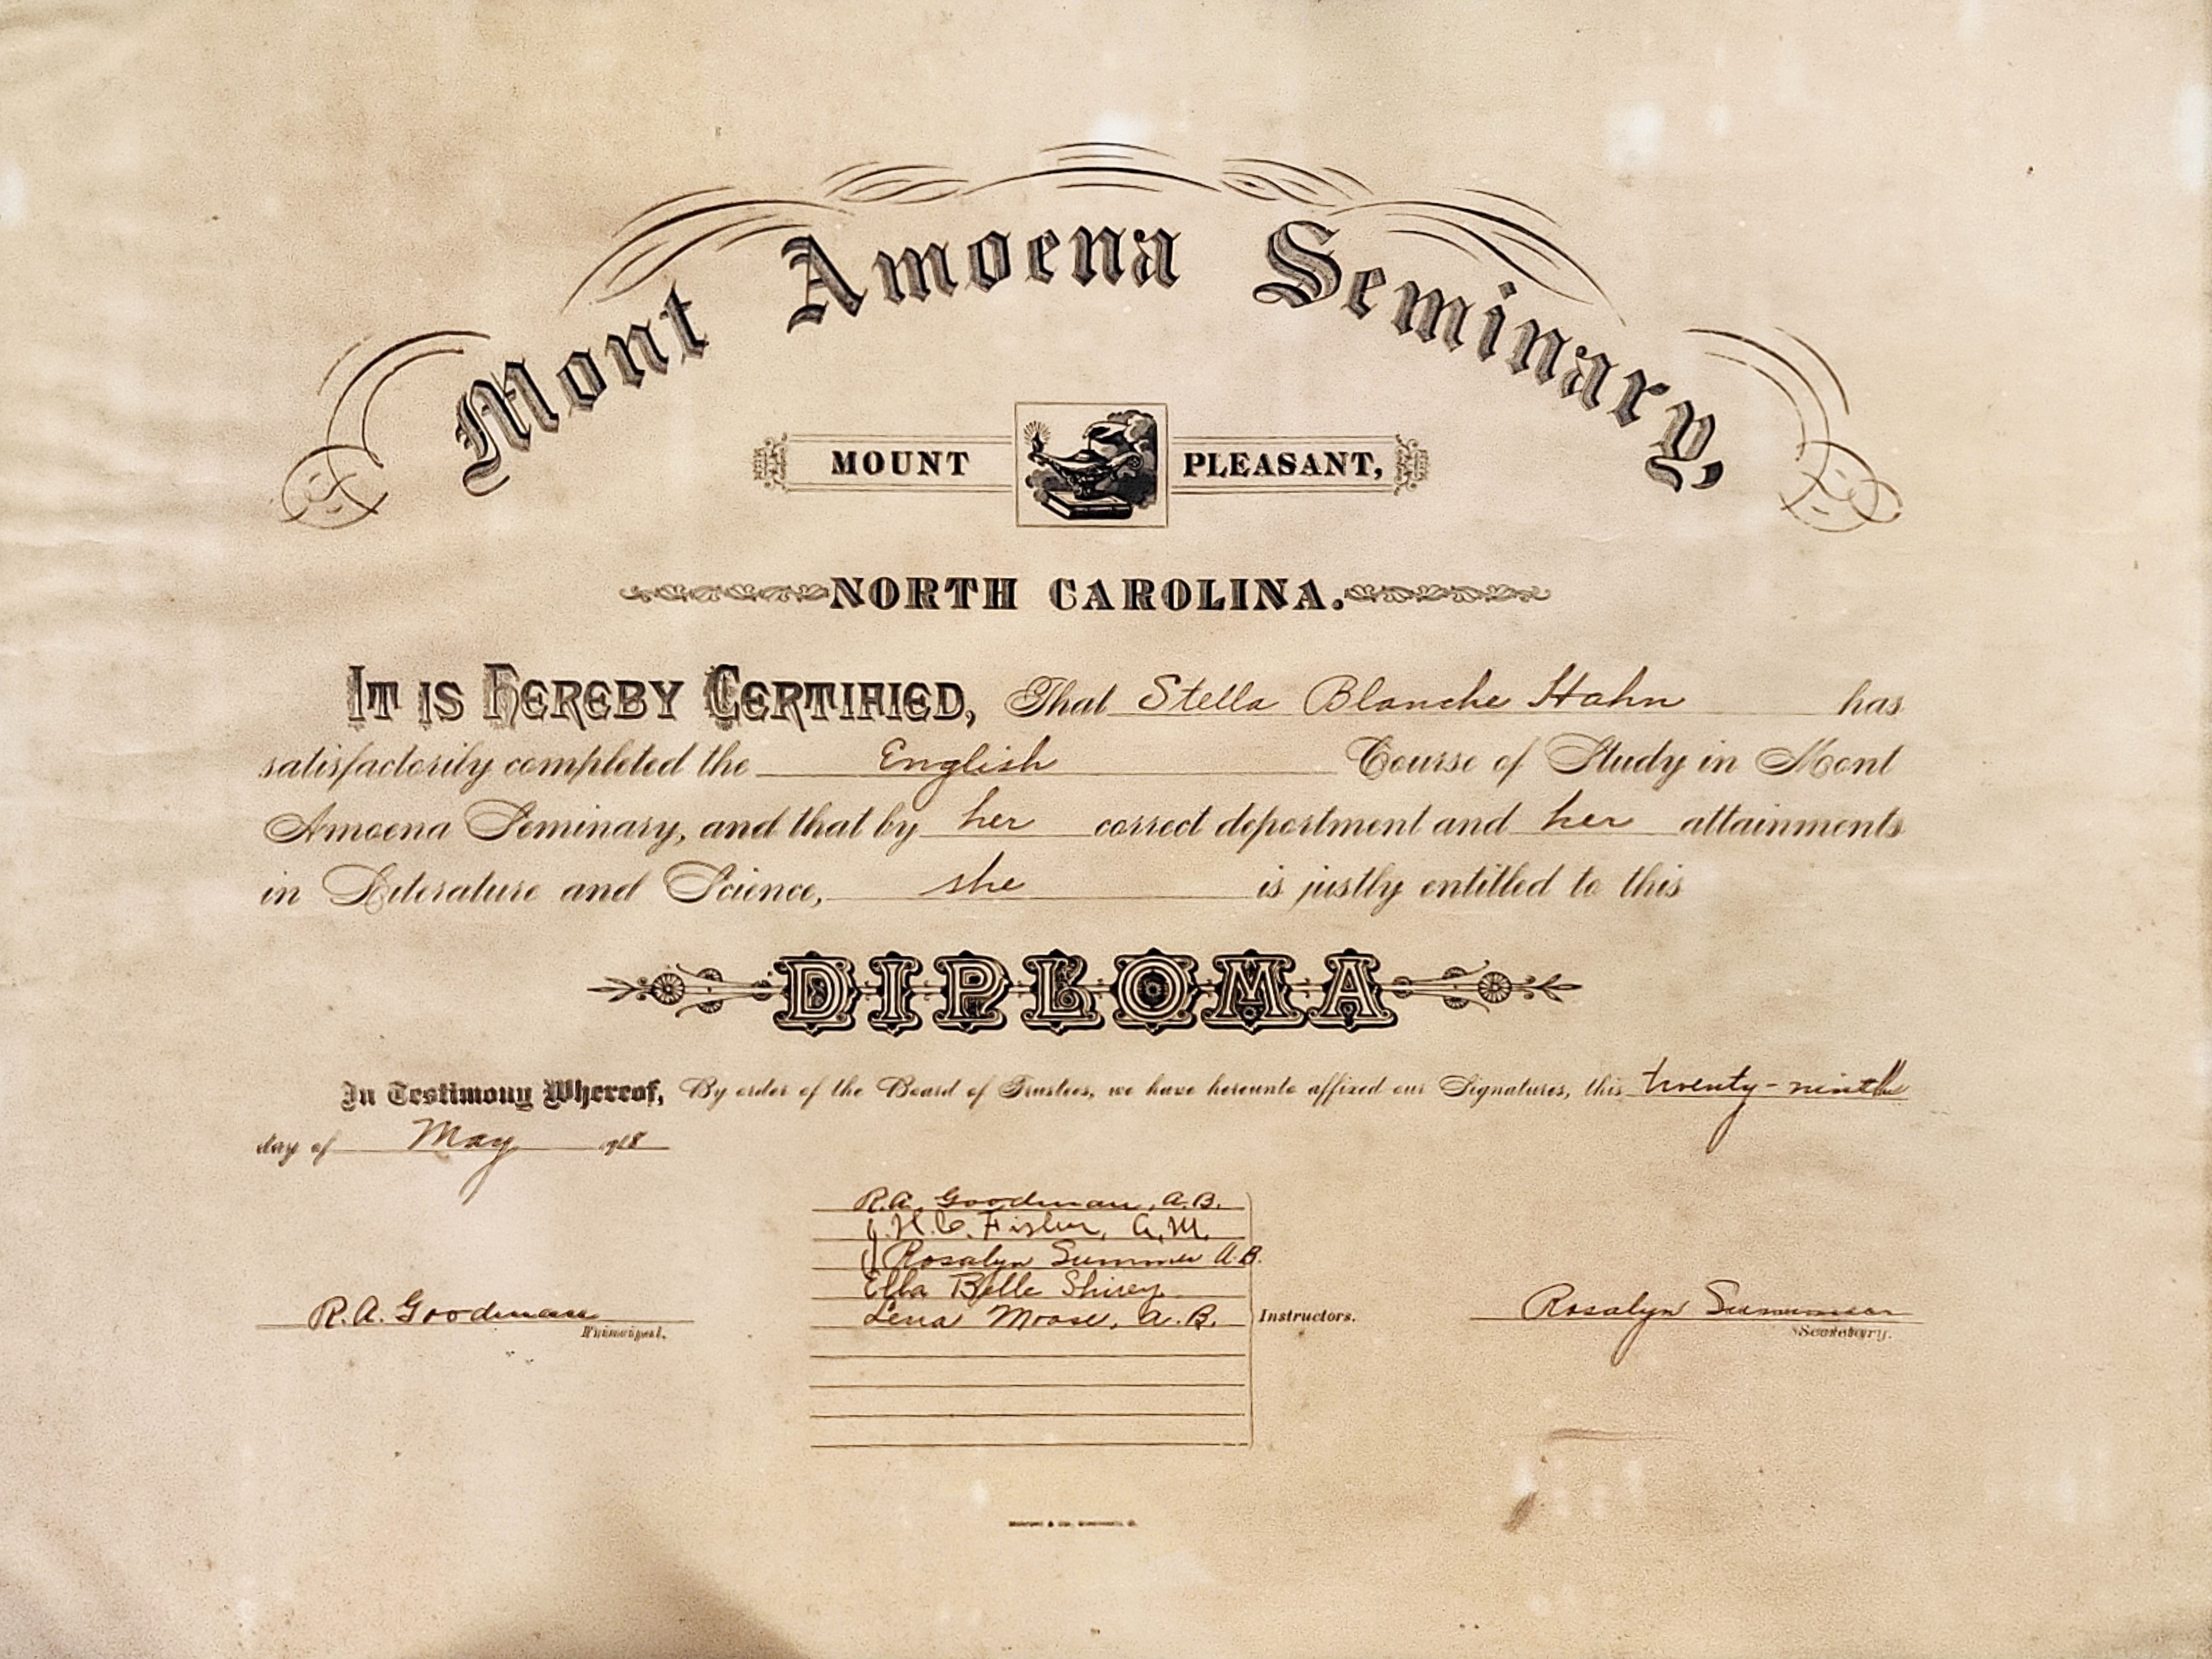 Mont Amoena Seminary,
MOUNT PLEASANT,
NORTH CAROLINA.
IT IS HEREBY CERTIFIED, That Stella Blanche Hahn has
satisfactorily completed the English Course of Study in Mont
Amoena Seminary, and that by her correct deportment and her attainments
in Literature and Science, she is justly entitled to this
DIPLOMA
In Testimony Whereof, By order of the Board of Trustees, we have hereunto affixed our Signatures, this twenty-ninth
day of May
R.A. Goodman, A.B.
J.H.C. Fisher, A.M.
Rosalyn Summer A.B.
Ella Belle Shirey
Lena Moose, A.B. Instructors.
R.A. Goodman
Principal.
Rosalyn Summer
Secretary.